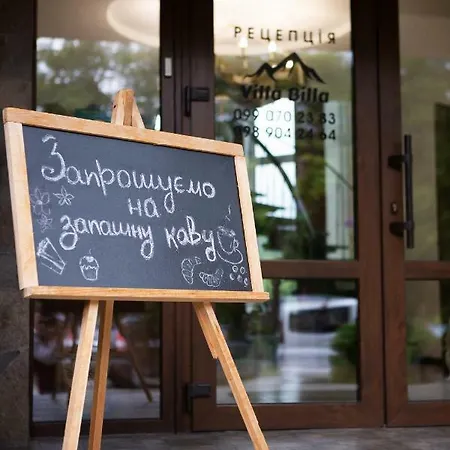 РЕЦЕПЦІЯ
Villa Billa
099 070 23 83
098 904 24 64
Запрошуємо
на
запашну каву